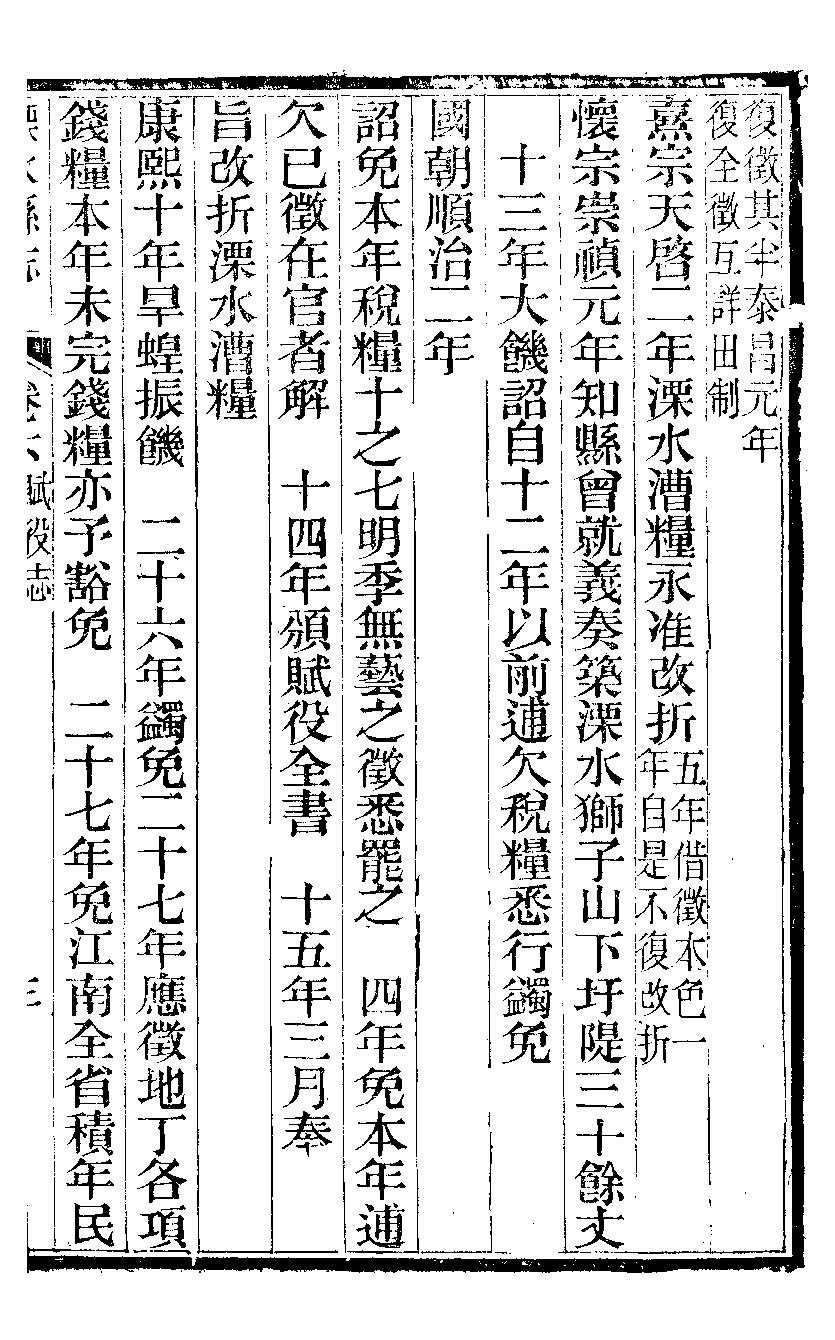 復徵其半泰昌元年
復全徵互詳田制
熹宗天啓二年溧水漕糧永准改折五年借徵本色一
年自是不復改折
懷宗崇禎元年知縣曾就義奏築溧水獅子山下圩隄三十餘丈
十三年大饑詔自十二年以前逋欠稅糧悉行蠲免
國朝順治二年
詔免本年稅糧十之七明季無藝之徵悉罷之　四年免本年逋
欠已徵在官者解　十四年頒賦役全書　十五年三月奉
旨改折溧水漕糧
康熙十年旱蝗振饑　二十六年蠲免二十七年應徵地丁各項
錢糧本年未完錢糧亦予豁免　二十七年免江南全省積年民
溧水縣志　卷六　賦役志　三